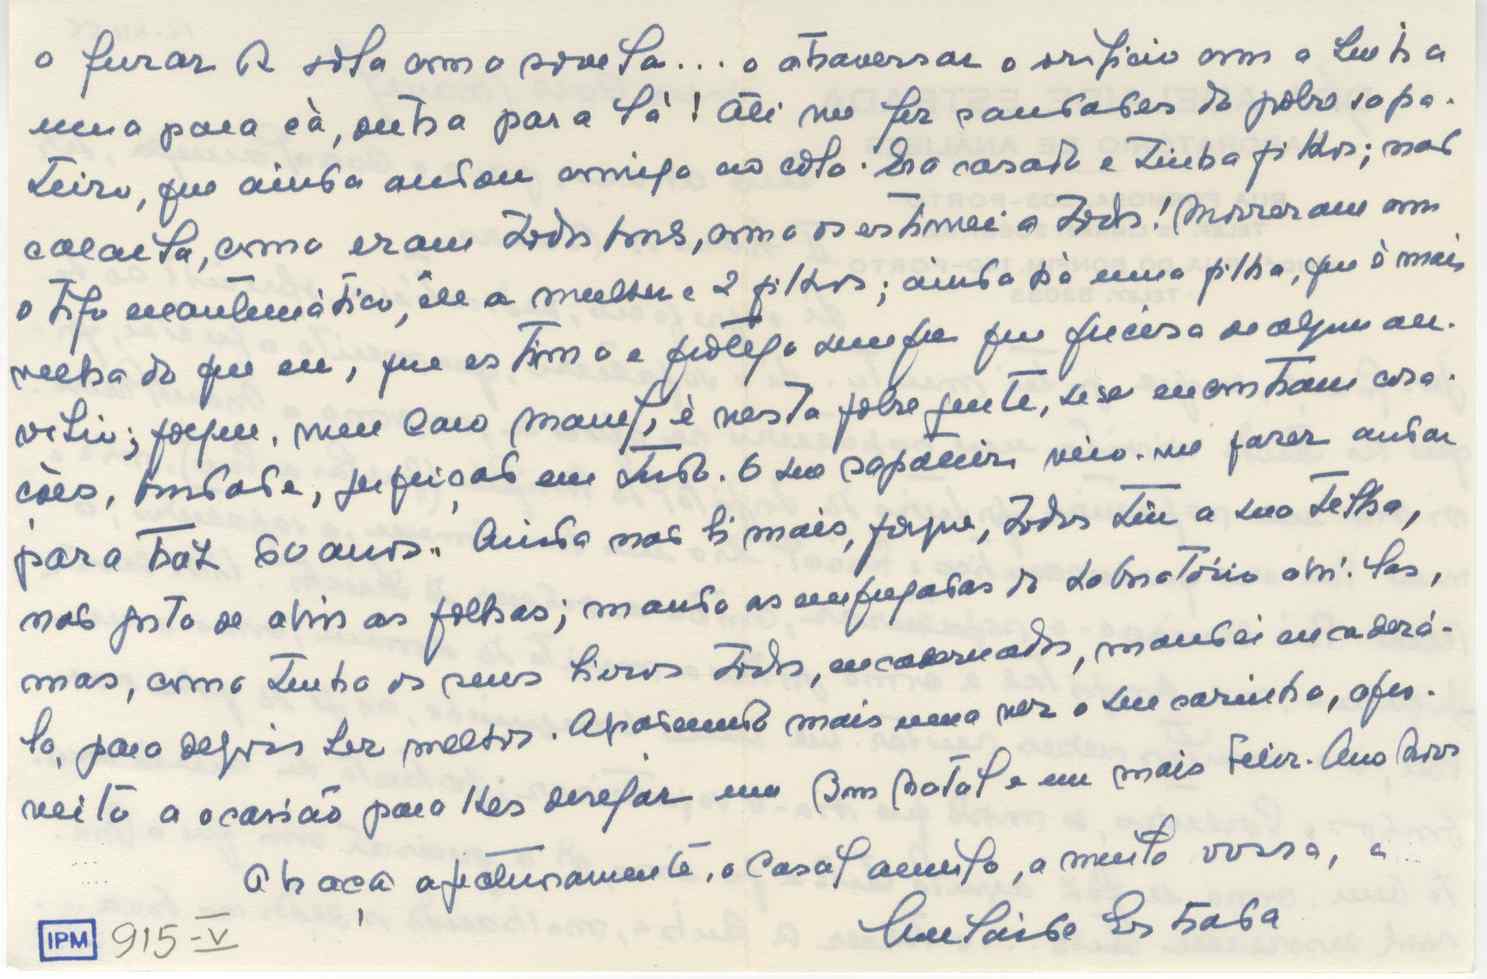 o furar a sola com a sovela... o atravessar o orifício com a linha
uma para cá, outra para lá! Ali me fez saudades do pobre sapa-
teiro, que ainda andou comigo ao colo. Era casado e tinha filhos; nas
calanta, como eram todos bons, como os estimei a todos! Morreram com
o tifo exantemático, êle a mulher e 2 filhos; ainda há uma filha, que é mais
velha do que eu, que estimo e protejo sempre que precisa de algum au-
xílio; porque, meu caro Manuel, é nesta pobre gente, que se encontram cora-
ções, bondade, perfeição em tudo. O seu sapateiro veio-me fazer andar
para traz 60 anos. Ainda não li mais, porque, todos têm a sua telha,
não gosto de abrir as folhas; mando as empregadas do laboratório abri-las,
mas, como tenho os seus livros todos, encadernados, mandei encaderná-
lo, para depois ler melhor. Agradecendo mais uma vez o seu carinho, apro-
veito a ocasião para lhes desejar um Bom Natal e um mais Feliz Ano Novo
Abraça afectuosamente, o Casal amigo, a muito vossa,
Estrada
IPM 915-V